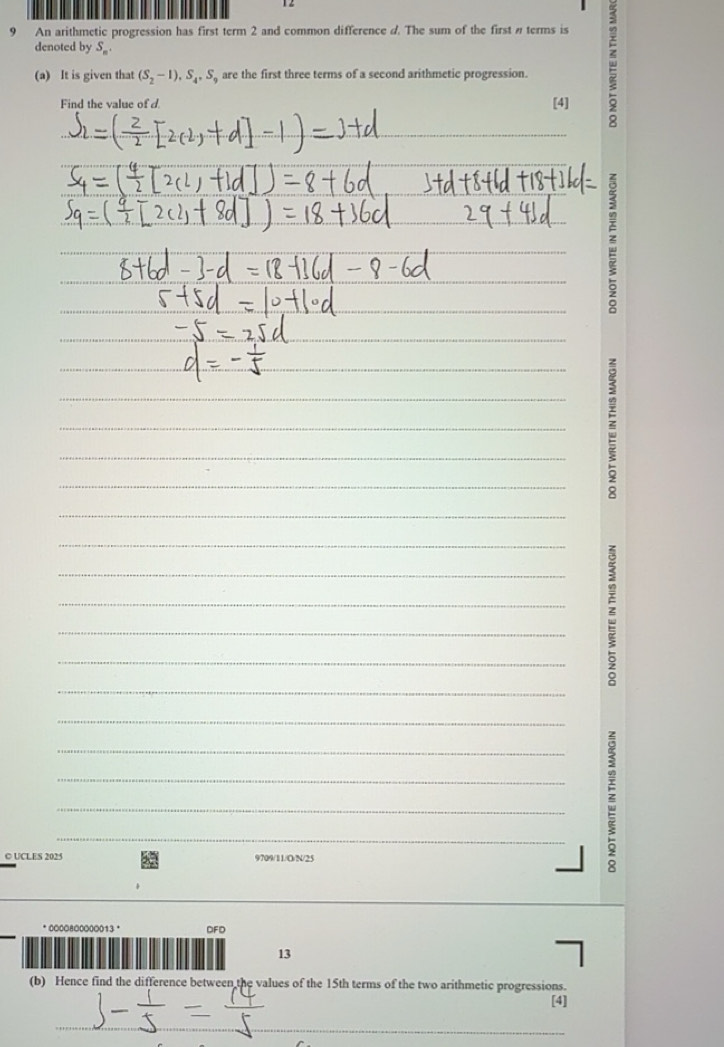 12
9 An arithmetic progression has first term 2 and common difference d. The sum of the first n terms is
denoted by Sₙ.
(a) It is given that (S₂ − 1), S₄, S₉ are the first three terms of a second arithmetic progression.
Find the value of d. [4]
S₂=(2/2[2(2)+d]-1)=3+d
S₄=(4/2[2(2)+3d])=8+6d 3+d+8+6d+18+36d=
S₉=(9/2[2(2)+8d])=18+36d 29+43d
8+6d-3-d=18+36d-8-6d
5+5d=10+30d
-5=25d
d=-1/5
© UCLES 2025 9709/11/O/N/25
DO NOT WRITE IN THIS MARGIN
DO NOT WRITE IN THIS MARGIN
DO NOT WRITE IN THIS MARGIN
DO NOT WRITE IN THIS MARGIN
DO NOT WRITE IN THIS MARGIN
* 0000800000013 * DFD
13
(b) Hence find the difference between the values of the 15th terms of the two arithmetic progressions.
[4]
3-1/5=14/5